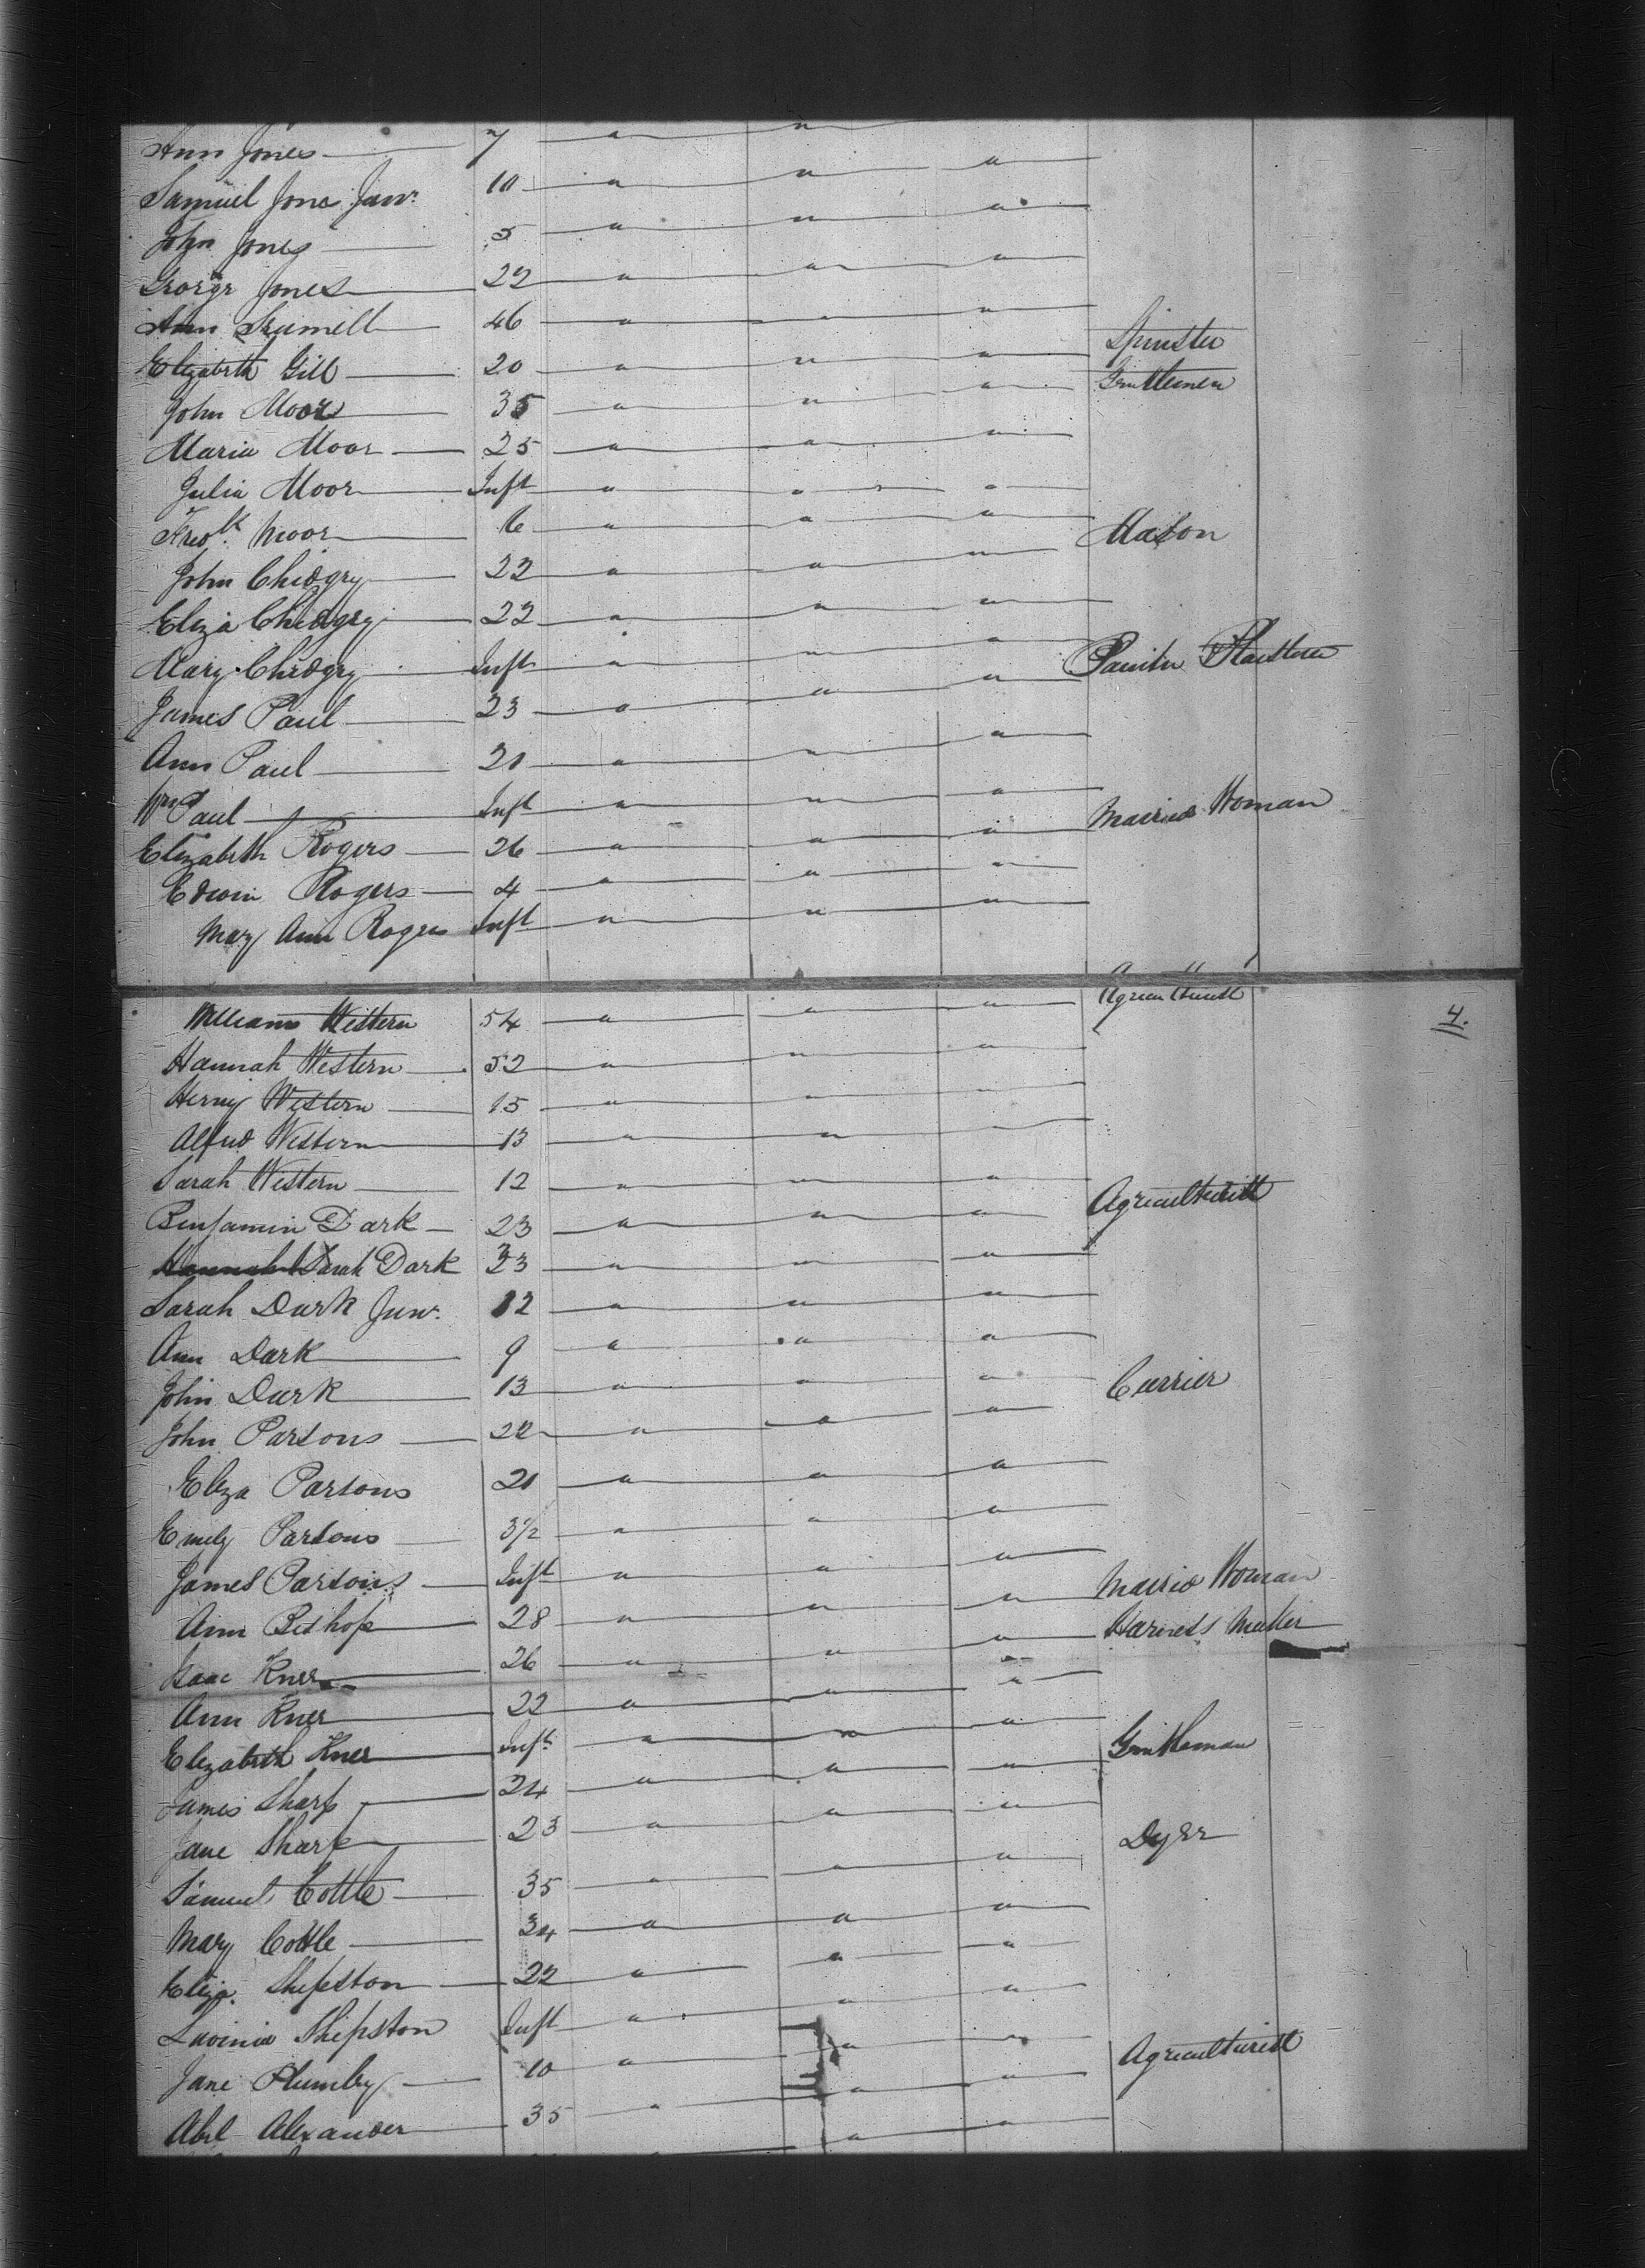 Ann Jones 7 " "
Samuel Jone Junr. 10 " " "
John Jones 5 " " "
George Jones 22 " " "
Ann 46 " " "
Elizabeth Gill 20 " " " Spinster
John Moor 35 " " " Gentlemen
Maria Moor 25 " " "
Julia Moor Inft " " "
Fredk. Moor 6 " " "
John Chidgey 22 " " " Mason
Eliza Chidgey 22 " " "
Mary Chidgey Inft " " "
James Paul 23 " " " Painter Plasterer
Ann Paul 21 " " "
Wm Paul Inft " " "
Elizabeth Rogers 26 " " " Married Woman
Edwin Rogers 4 " " "
Mary Ann Rogers Inft " " "
William Western 54 " " " Agriculturist
4.
Hannah Western 52 " " "
Henry Western 15 " " "
Alfred Western 13 " " "
Sarah Western 12 " " "
Benjamin Dark 23 " " " Agriculturist
Hannah Sarah Dark 33 " " "
Sarah Dark Junr. 12 " " "
Ann Dark 9 " " "
John Dark 13 " " "
John Parsons 22 " " " Currier
Eliza Parsons 21 " " "
Emily Parsons 3½ " " "
James Parsons Inft " " "
Ann Bishop 28 " " " Married Woman
Isaac Knee 26 " " " Harness Maker
Ann Knee 22 " " "
Elizabeth Knee Inft " " "
James Sharp 24 " " " Gentleman
Jane Sharp 23 " " "
Samuel Cottle 35 " " " Dyer
Mary Cottle 34 " " "
Eliza. Shepston 22 " " "
Lavinia Shepston Inft " " "
Jane Plumley 10 " " "
Abel Alexander 35 " " " Agriculturist